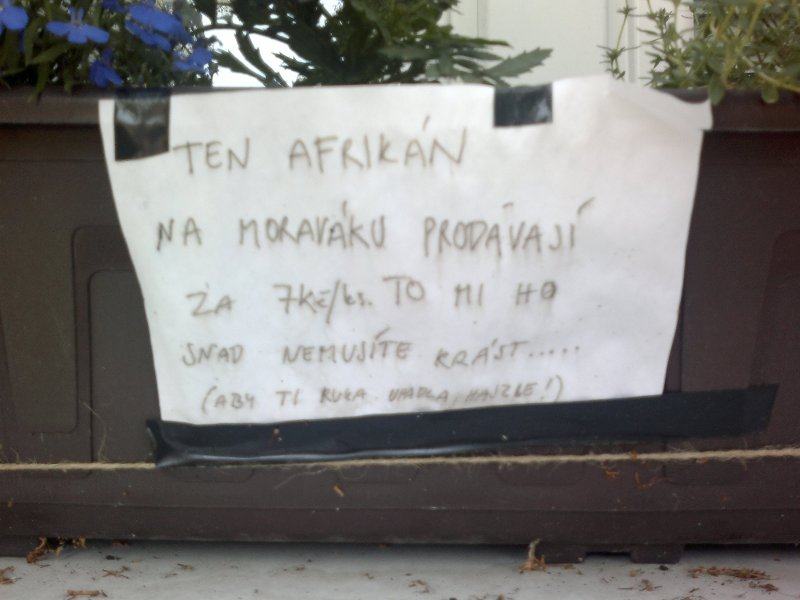 TEN AFRIKÁN
NA MORAVÁKU PRODÁVAJÍ
ZA 7Kč/ks. TO MI HO
SNAD NEMUSÍTE KRÁST.....
(ABY TI RUKA UPADLA, HAJZLE!)